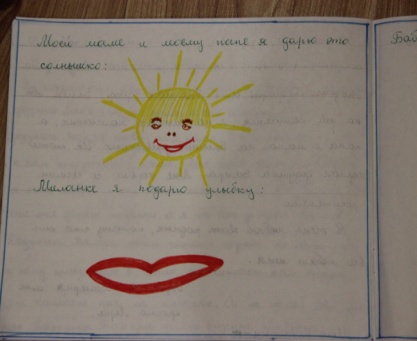 Моей маме и моему папе я дарю это
солнышко:
Миланке я подарю улыбку:
Баб